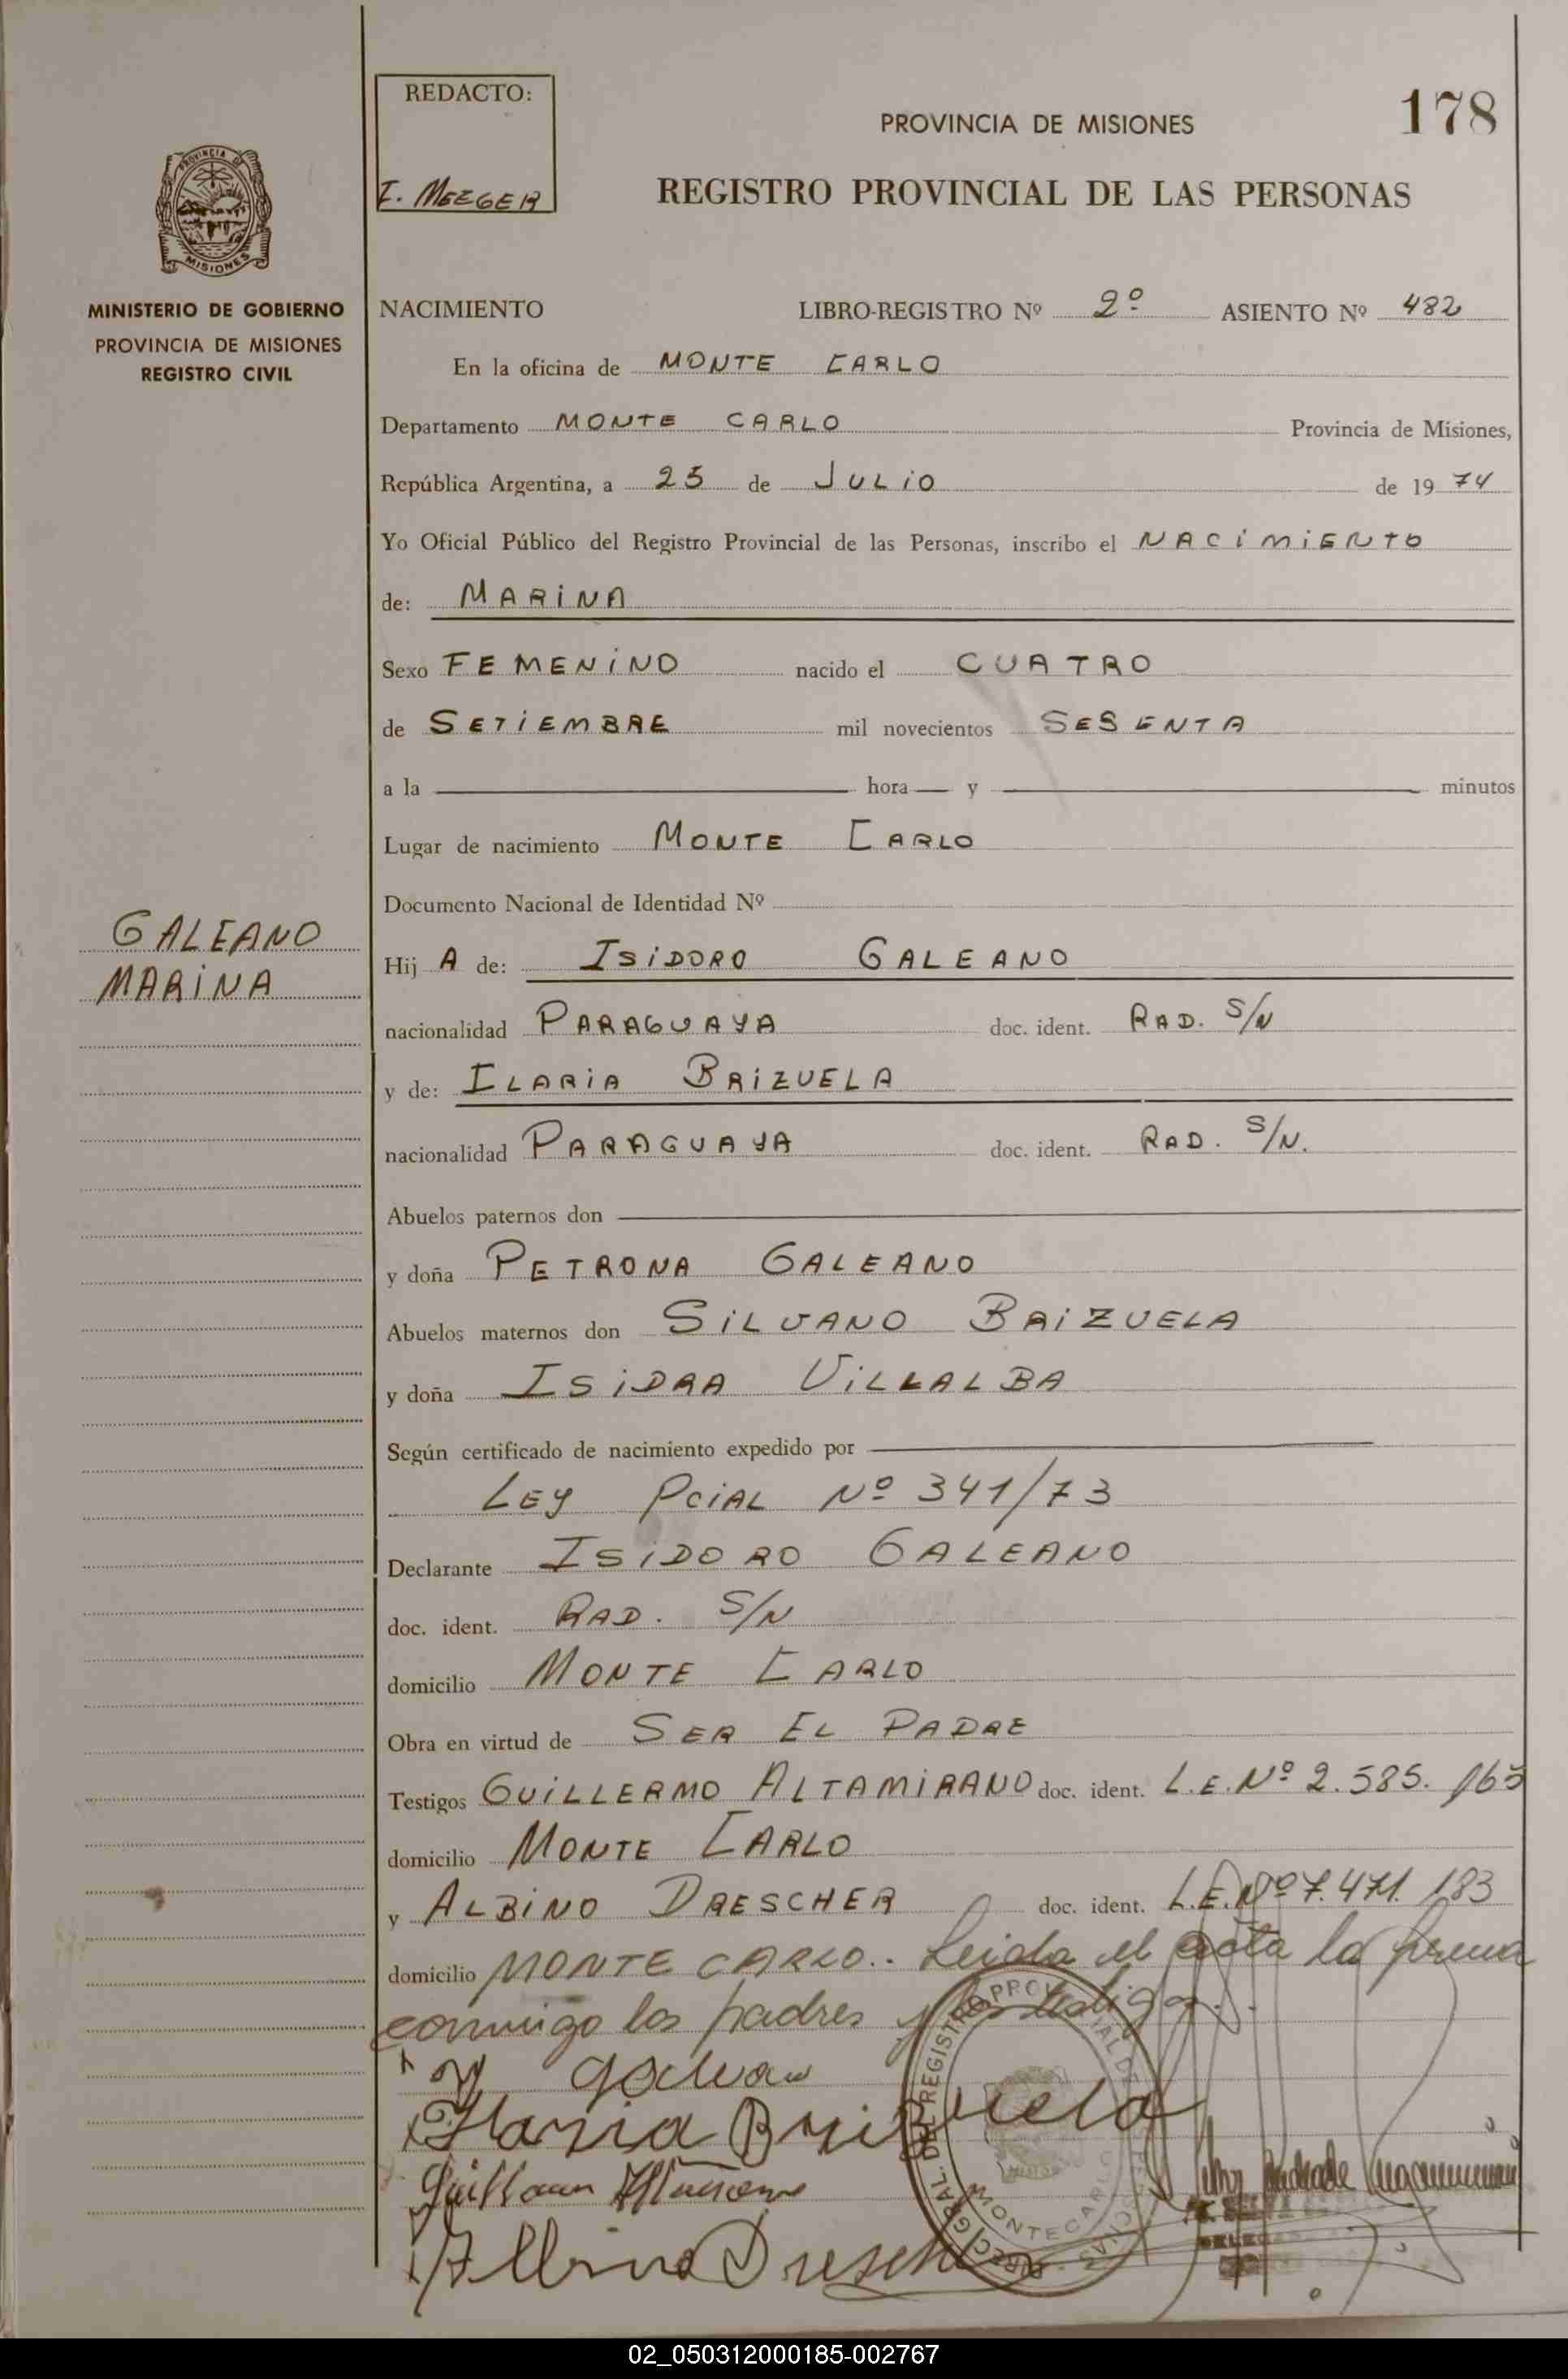 REDACTO:
178
PROVINCIA DE MISIONES
REGISTRO PROVINCIAL DE LAS PERSONAS
PROVINCIA DE
MISIONES
MINISTERIO DE GOBIERNO
PROVINCIA DE MISIONES
REGISTRO CIVIL
NACIMIENTO LIBRO-REGISTRO Nº 2º ASIENTO Nº 482
En la oficina de MONTE CARLO
Departamento MONTE CARLO Provincia de Misiones,
República Argentina, a 25 de JULIO de 19 74
Yo Oficial Público del Registro Provincial de las Personas, inscribo el NACIMIENTO
de: MARINA
Sexo FEMENINO nacido el CUATRO
de SETIEMBRE mil novecientos SESENTA
a la hora y minutos
Lugar de nacimiento MONTE CARLO
Documento Nacional de Identidad Nº
GALEANO
MARINA
Hij A de: ISIDORO GALEANO
nacionalidad PARAGUAYA doc. ident. RAD. S/N
y de: ILARIA BRIZUELA
nacionalidad PARAGUAYA doc. ident. RAD. S/N.
Abuelos paternos don
y doña PETRONA GALEANO
Abuelos maternos don SILVANO BRIZUELA
y doña ISIDRA VILLALBA
Según certificado de nacimiento expedido por
LEY PCIAL Nº 341/73
Declarante ISIDORO GALEANO
doc. ident. RAD. S/N
domicilio MONTE CARLO
Obra en virtud de SER EL PADRE
Testigos GUILLERMO ALTAMIRANO doc. ident. L.E. Nº 2.585.165
domicilio MONTE CARLO
y ALBINO DRESCHER doc. ident. L.E. Nº 7.471.183
domicilio MONTE CARLO.. Leida el acta la firma
conmigo los padres y los testigos.
Ilaria Brizuela
Albino Dresch
MONTECARLO
02_050312000185-002767